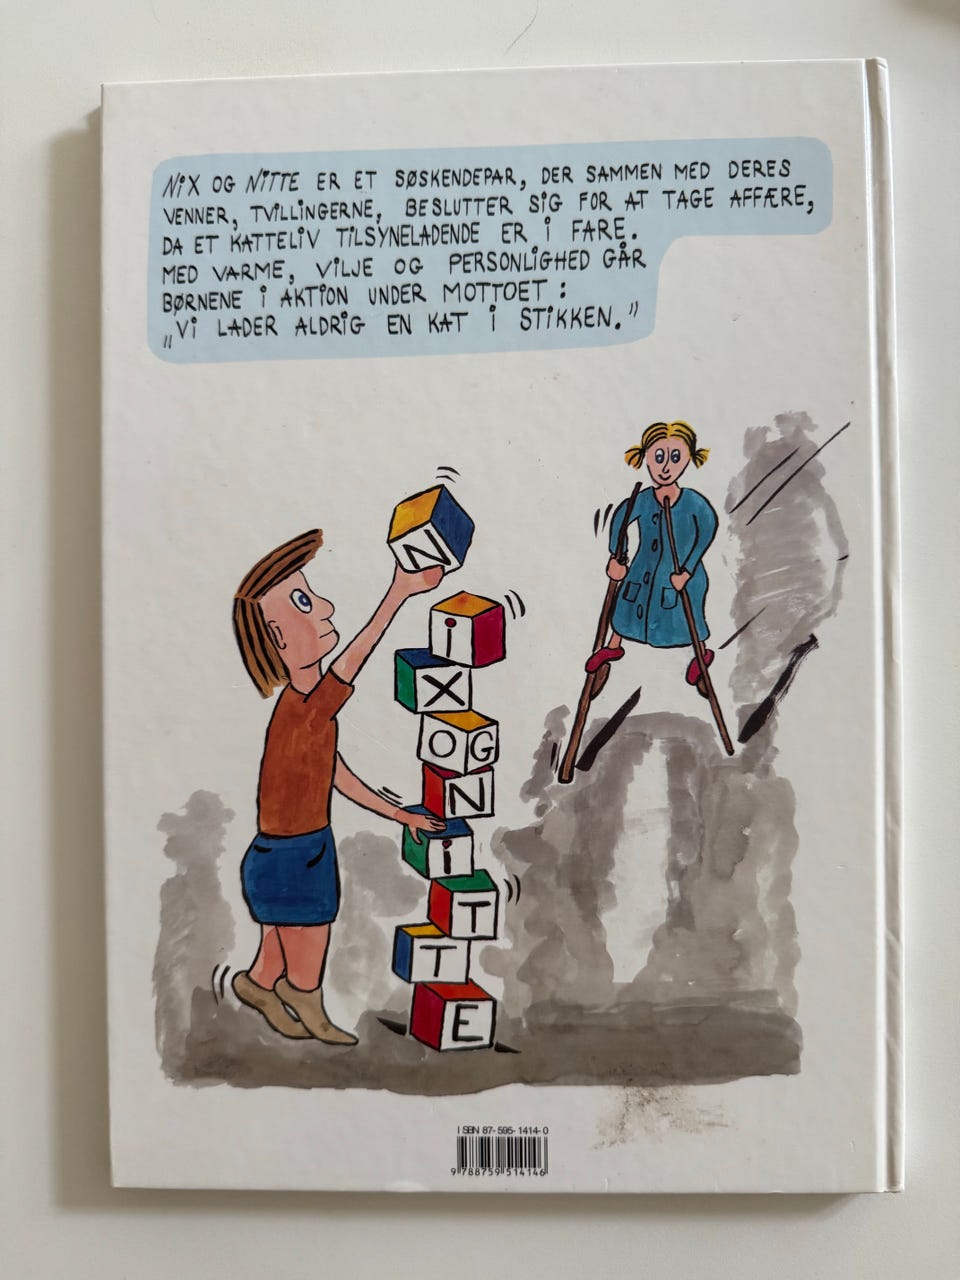 NiX OG NiTTE ER ET SØSKENDEPAR, DER SAMMEN MED DERES
VENNER, TVILLINGERNE, BESLUTTER SIG FOR AT TAGE AFFÆRE,
DA ET KATTELIV TILSYNELADENDE ER i FARE.
MED VARME, VILJE OG PERSONLIGHED GÅR
BØRNENE i AKTION UNDER MOTTOET:
„Vi LADER ALDRIG EN KAT i STIKKEN."
N
i
X
O G
N
i
T
T
E
ISBN 87-595-1414-0
9 788759 514146